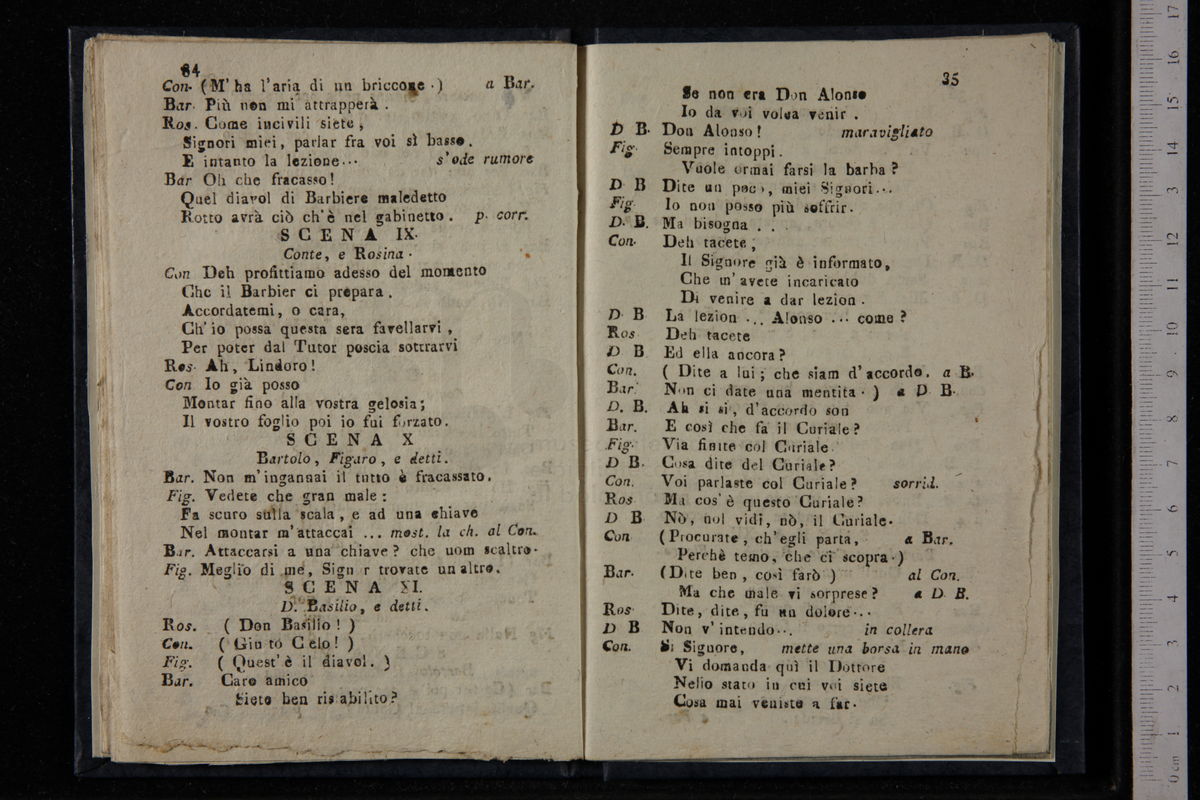 84
Con. (M' ha l'aria di un briccone.) a Bar.
Bar. Più non mi attrapperà.
Ros. Come incivili siete,
Signori miei, parlar fra voi sì basso.
E intanto la lezione... s'ode rumore
Bar Oh che fracasso!
Quel diavol di Barbiere maledetto
Rotto avrà ciò ch'è nel gabinetto. p. corr.
SCENA IX.
Conte, e Rosina.
Con Deh profittiamo adesso del momento
Che il Barbier ci prepara.
Accordatemi, o cara,
Ch' io possa questa sera favellarvi,
Per poter dal Tutor poscia sottrarvi
Ros. Ah, Lindoro!
Con Io già posso
Montar fino alla vostra gelosia;
Il vostro foglio poi io fui forzato.
SCENA X
Bartolo, Figaro, e detti.
Bar. Non m'ingannai il tutto è fracassato.
Fig. Vedete che gran male:
Fa scuro sulla scala, e ad una chiave
Nel montar m'attaccai ... most. la ch. al Con.
Bar. Attaccarsi a una chiave? che uom scaltro.
Fig. Meglio di me, Sign r trovate un altro.
SCENA XI.
D. Basilio, e detti.
Ros. (Don Basilio!)
Con. (Giu to Celo!)
Fig. (Quest'è il diavol.)
Bar. Caro amico
Siete ben ris abilito?
35
Se non era Don Alonso
Io da voi volea venir.
D B. Don Alonso! maravigliato
Fig. Sempre intoppi.
Vuole ormai farsi la barba?
D B Dite un poco, miei Signori...
Fig. Io non posso più soffrir.
D. B. Ma bisogna . . .
Con. Deh tacete;
Il Signore già è informato,
Che m'avete incaricato
Di venire a dar lezion.
D B La lezion ... Alonso ... come?
Ros Deh tacete
D B Ed ella ancora?
Con. (Dite a lui; che siam d'accordo. a B.
Bar. Non ci date una mentita.) a D B.
D. B. Ah si si, d'accordo son
Bar. E così che fa il Curiale?
Fig. Via finite col Curiale
D B. Cosa dite del Curiale?
Con. Voi parlaste col Curiale? sorrid.
Ros Ma cos'è questo Curiale?
D B Nò, nol vidi, nò, il Curiale.
Con (Procurate, ch'egli parta, a Bar.
Perchè temo, che ci scopra.)
Bar. (Dite ben, così farò) al Con.
Ma che male vi sorprese? a D B.
Ros Dite, dite, fu un dolore...
D B Non v'intendo... in collera
Con. Si Signore, mette una borsa in mano
Vi domanda quì il Dottore
Nello stato in cui voi siete
Cosa mai veniste a far.